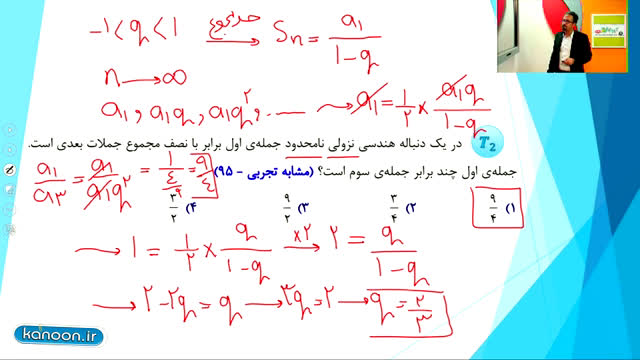 -1 < q < 1 → حد مجموع Sn = a1 / 1-q
n → ∞
a1 , a1q , a1q² , ... → a1 = 1/2 × a1q / 1-q
T2 در یک دنباله هندسی نزولی نامحدود جمله‌ی اول برابر با نصف مجموع جملات بعدی است.
جمله‌ی اول چند برابر جمله‌ی سوم است؟ (مشابه تجربی - ۹۵)
a1/a3 = a1/a1q² = 1/(۴/۹) = ۹/۴
۱) ۹/۴ ۲) ۳/۴ ۳) ۹/۲ ۴) ۳/۲
→ 1 = 1/2 × q / 1-q ×۲→ ۲ = q / 1-q
→ ۲ - ۲q = q → ۳q = ۲ → q = ۲/۳
kanoon.ir